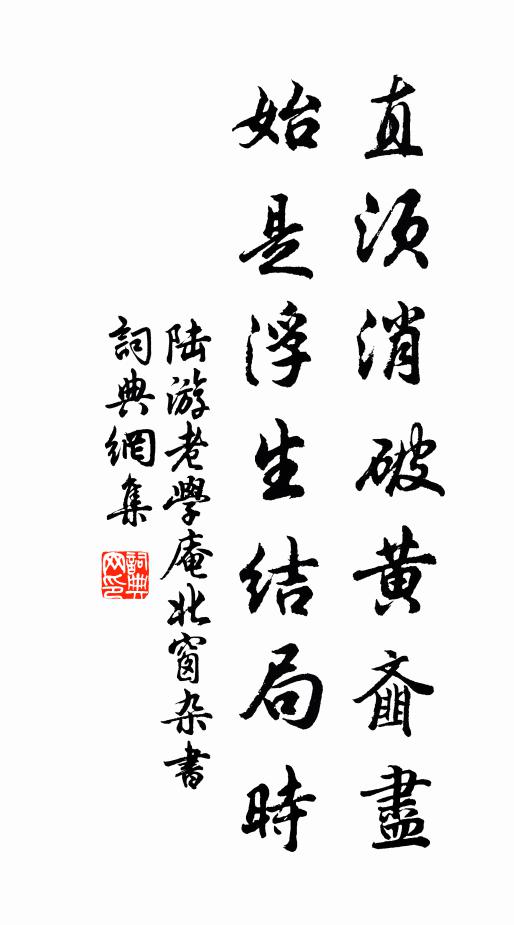 直須消破黄齑盡
始是浮生結局時
陸游老學庵北窗杂書
詞典網集
詞典网印